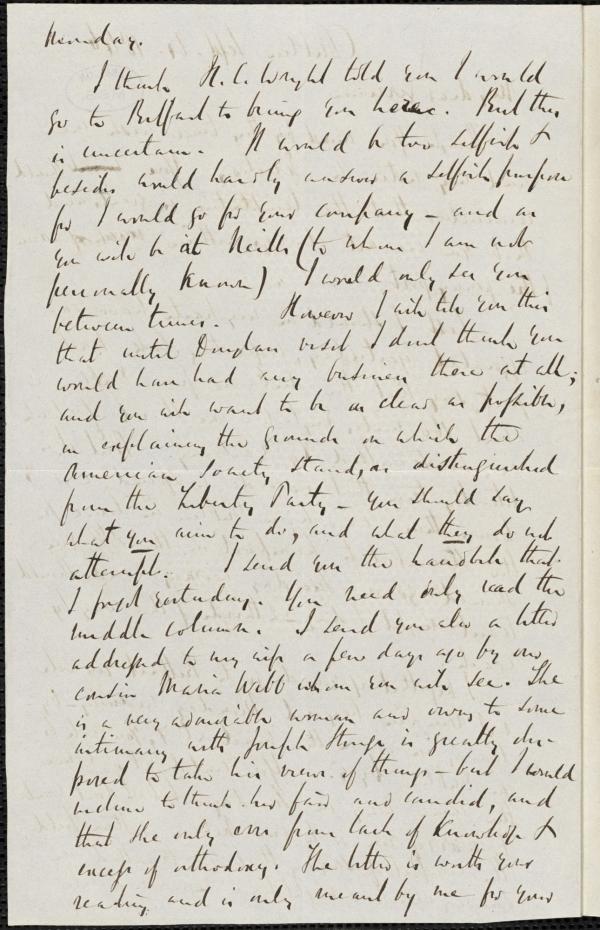 Monday.
I think H. C. Wright told you I would
go to Belfast to bring you here. But this
is uncertain. It would be too selfish &
besides would hardly answer a selfish purpose
for I would go for your company – and as
you will be at Neills (to whom I am not
personally known) I would only see you
between times. However I will tell you this
that until Douglass visit I dont think you
would have had any business there at all;
and you will want to be as clear as possible,
in explaining the grounds on which the
American Society stands, as distinguished
from the Liberty Party – you should say
what you aim to do, and what they do not
attempt. I send you the handbill that
I forgot yesterday. You need only read the
middle column. I send you also a letter
addressed to my wife a few days ago by our
cousin Maria Webb whom you will see. She
is a very admirable woman and owing to some
intimacy with Joseph Sturge is greatly dis-
posed to take his views of things – but I would
incline to think her fair and candid, and
that she only errs from lack of knowledge &
excess of orthodoxy. The letter is worth your
reading and is only meant by me for your